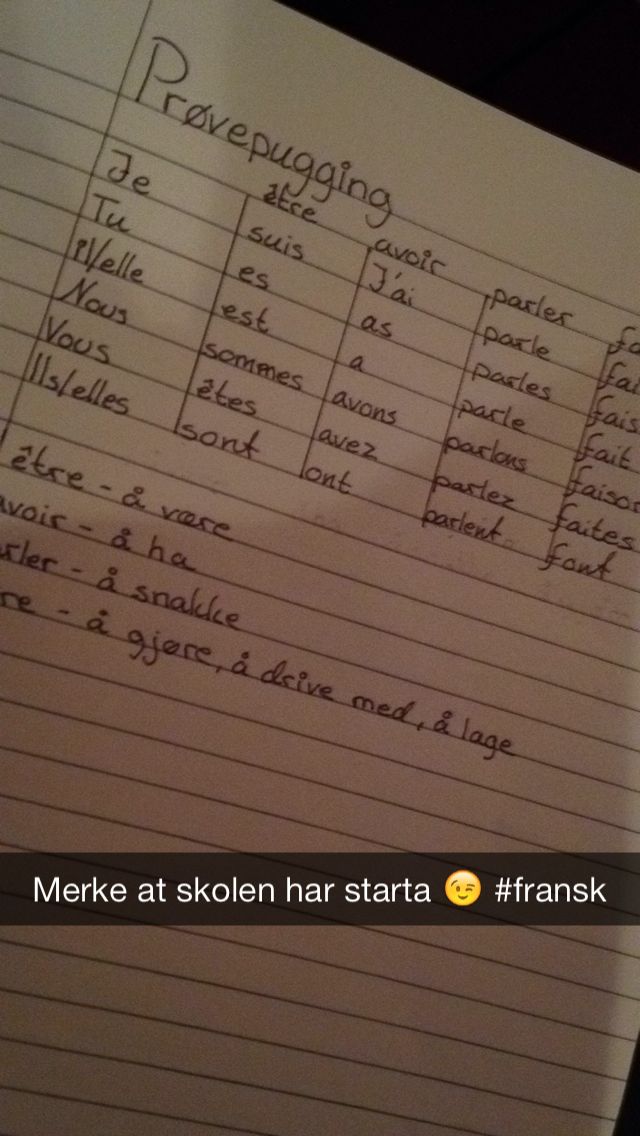 Prøvepugging
être avoir parler fa
Je suis J'ai parle fai
Tu es as parles fais
il/elle est a parle fait
Nous sommes avons parlons faison
Vous êtes avez parlez faites
Ils/elles sont ont parlent font
être - å være
avoir - å ha
rler - å snakke
re - å gjøre, å drive med, å lage
Merke at skolen har starta 😉 #fransk